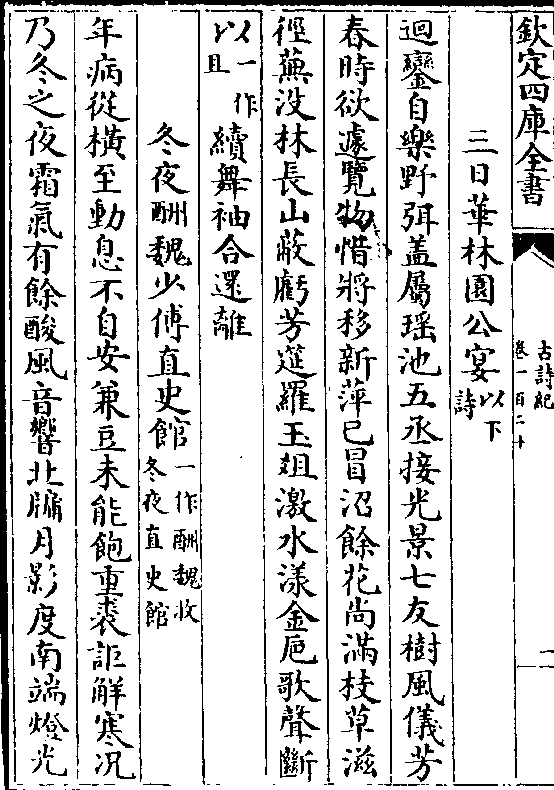 欽定四庫全書
古詩紀
卷一百二十
一
三日華林園公宴以下詩
迴鑾自樂野弭蓋屬瑶池五丞接光景七友樹風儀芳
春時欲遽覽物惜將移新萍已冒沼餘花尚滿枝草滋
徑蕪没林長山蔽虧芳筵羅玉俎激水漾金巵歌聲斷
以一作且續舞袖合還離
冬夜酬魏少傅直史館一作酬魏收冬夜直史館
年病從橫至動息不自安兼豆未能飽重裘詎解寒况
乃冬之夜霜氣有餘酸風音響北牖月影度南端燈光